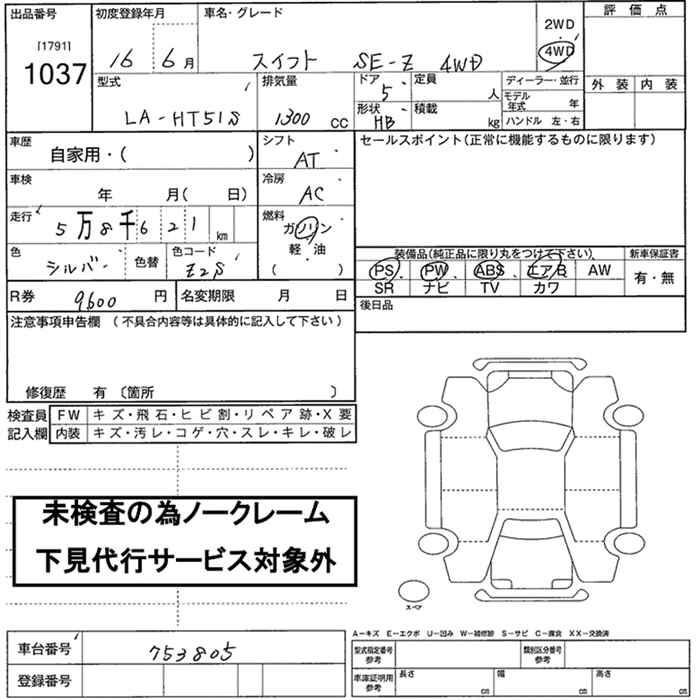 出品番号 初度登録年月 車名・グレード 2WD 評価点
[1791] 1037 16 6月 スイフト SE-Z 4WD 4WD
型式 排気量 ドア 定員 ディーラー・並行 外装 内装
LA-HT51S 1300 cc 5 人 モデル年式 年
形状 積載 ハンドル 左・右
HB kg
車歴 シフト セールスポイント(正常に機能するものに限ります)
自家用・( ) AT
車検 冷房
年 月( 日) AC
走行 燃料
5万8千621 km ガソリン
軽・油
( )
色 色替 色コード 装備品(純正品に限り丸をつけて下さい) 新車保証書
シルバー Z2S PS PW ABS エアB AW 有・無
SR ナビ TV カワ
R券 9600 円 名変期限 月 日 後日品
注意事項申告欄 (不具合内容等は具体的に記入して下さい)
修復歴 有 〔箇所 〕
検査員 FW キズ・飛石・ヒビ割・リペア跡・X要
記入欄 内装 キズ・汚レ・コゲ・穴・スレ・キレ・破レ
未検査の為ノークレーム
下見代行サービス対象外
スペア
A-キズ E-エクボ U-凹み W-補修跡 S-サビ C-腐食 XX-交換済
車台番号 753805 型式指定番号 参考 類別区分番号 参考
登録番号 車庫証明用 参考 長さ cm 幅 cm 高さ cm